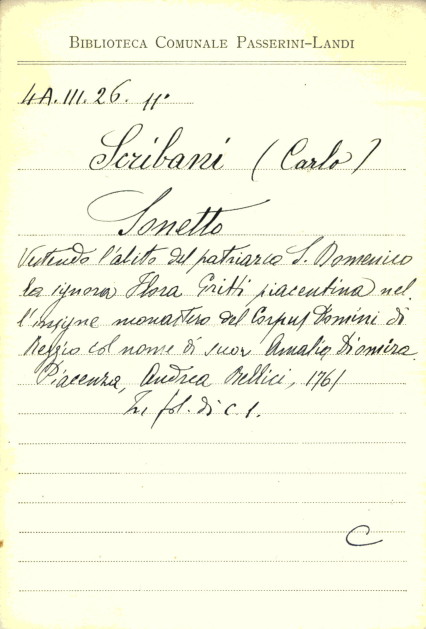 BIBLIOTECA COMUNALE PASSERINI-LANDI
4A.III.26. 11º
Scribani (Carlo)
Sonetto
Vestendo l'abito del patriarca S. Domenico
la signora Flora Gritti piacentina nel-
l'insigne monastero del Corpus Domini di
Reggio col nome di suor Amalia Diomira.
Piacenza, Andrea Bellici, 1761
In fol. di c. 1.
C